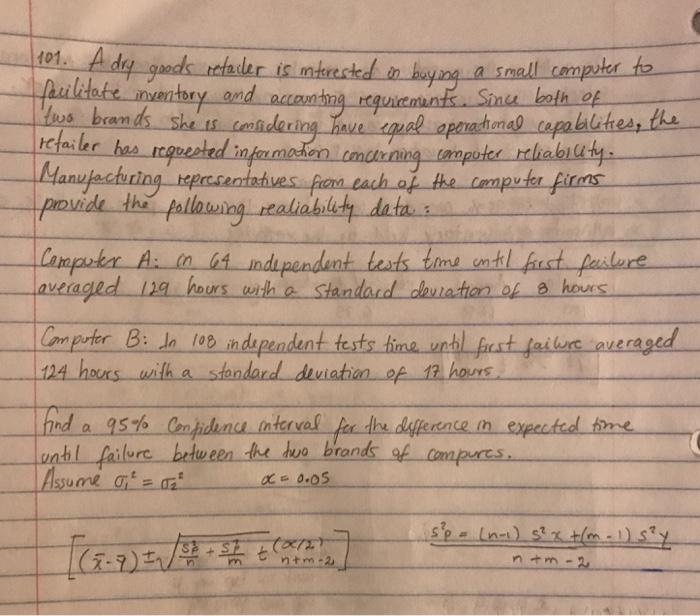 101. A dry goods retailer is interested in buying a small computer to
facilitate inventory and accounting requirements. Since both of
two brands she is considering have equal operational capabilities, the
retailer has requested information concerning computer reliability.
Manufacturing representatives from each of the computer firms
provide the following realiability data :
Computer A: in 64 independent tests time until first failure
averaged 129 hours with a standard deviation of 8 hours
Computer B: In 108 independent tests time until first failure averaged
124 hours with a standard deviation of 17 hours.
find a 95% Confidence interval for the difference in expected time
until failure between the two brands of compures.
Assume σ₁² = σ₂² α = 0.05
[(x̄-ȳ) ± √(s²p/n + s²p/m) t(α/2) n+m-2] s²p = (n-1) s²x + (m-1) s²y / n+m-2